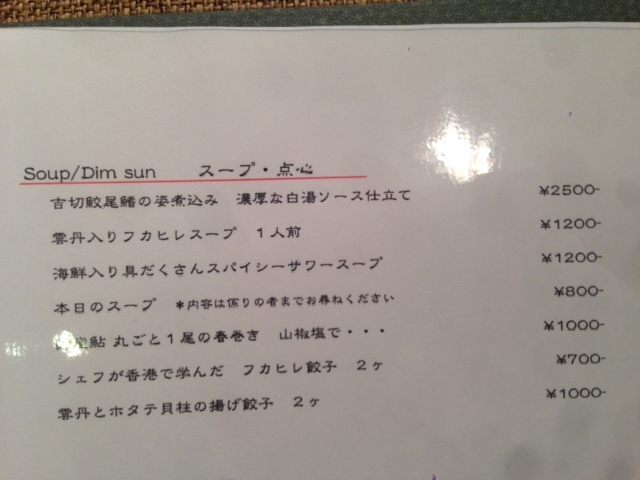 Soup/Dim sun スープ・点心
吉切鮫尾鰭の姿煮込み 濃厚な白湯ソース仕立て ¥2500-
雲丹入りフカヒレスープ 1人前 ¥1200-
海鮮入り具だくさんスパイシーサワースープ ¥1200-
本日のスープ *内容は係りの者までお尋ねください ¥800-
鮎 丸ごと1尾の春巻き 山椒塩で・・・ ¥1000-
シェフが香港で学んだ フカヒレ餃子 2ヶ ¥700-
雲丹とホタテ貝柱の揚げ餃子 2ヶ ¥1000-